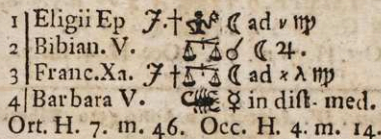 1 Eligii Ep J. † ♐ ☾ ad ν ♍
2 Bibian. V. ♎ ☌ ☾ ♃.
3 Franc. Xa. J † ♎ ☾ ad χ λ ♍
4 Barbara V. ♏ ☿ in dist. med.
Ort. H. 7. m. 46. Occ. H. 4. m. 14